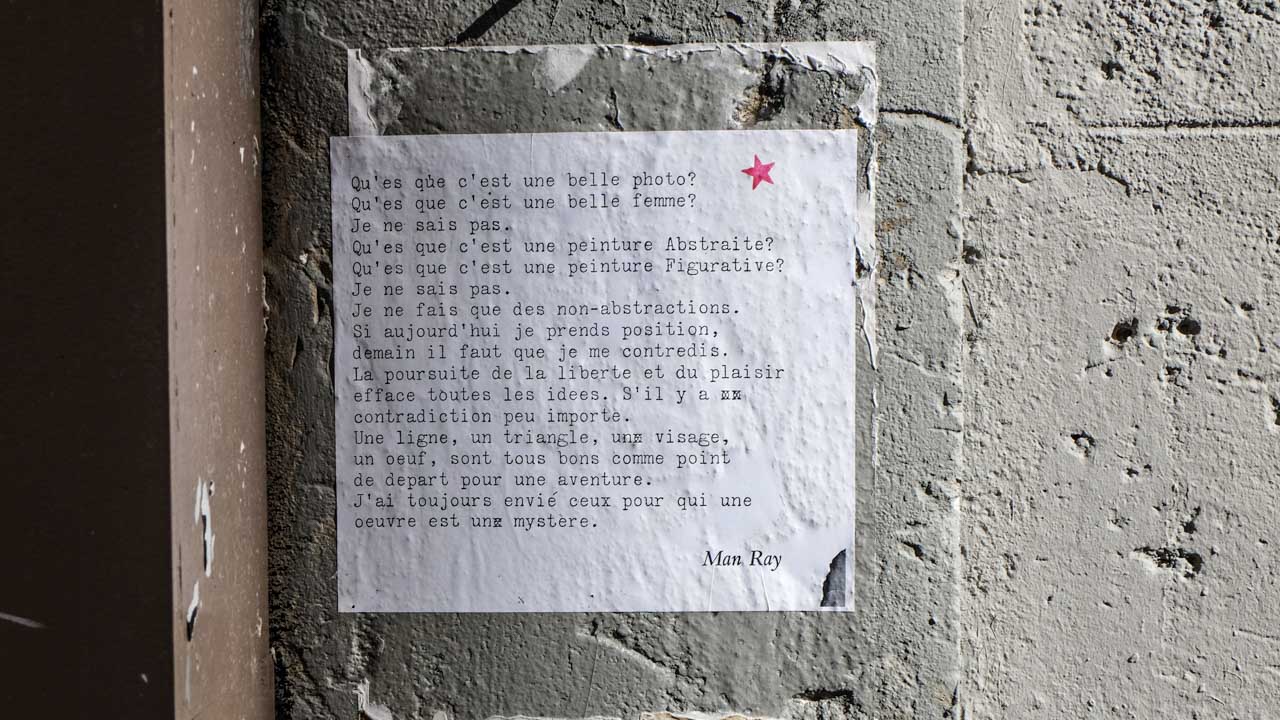 Qu'es que c'est une belle photo?
Qu'es que c'est une belle femme?
Je ne sais pas.
Qu'es que c'est une peinture Abstraite?
Qu'es que c'est une peinture Figurative?
Je ne sais pas.
Je ne fais que des non-abstractions.
Si aujourd'hui je prends position,
demain il faut que je me contredis.
La poursuite de la liberte et du plaisir
efface toutes les idees. S'il y a xx
contradiction peu importe.
Une ligne, un triangle, unx visage,
un oeuf, sont tous bons comme point
de depart pour une aventure.
J'ai toujours envié ceux pour qui une
oeuvre est unx mystère.
Man Ray